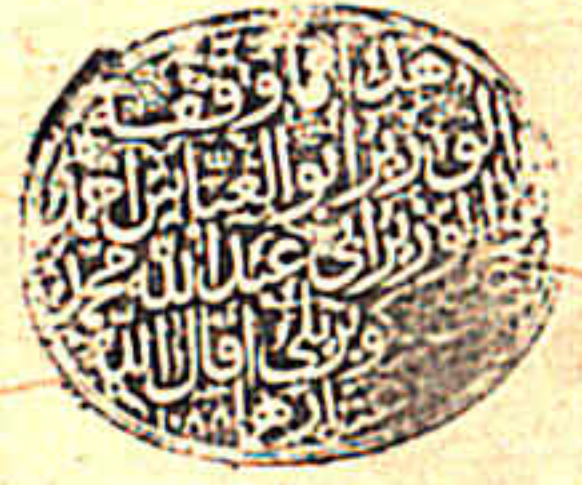 هذا ما وقفه
الوزير ابو العباس احمد
بن الوزير ابي عبد الله محمد
كوبريلي اقال الله
عثارهما